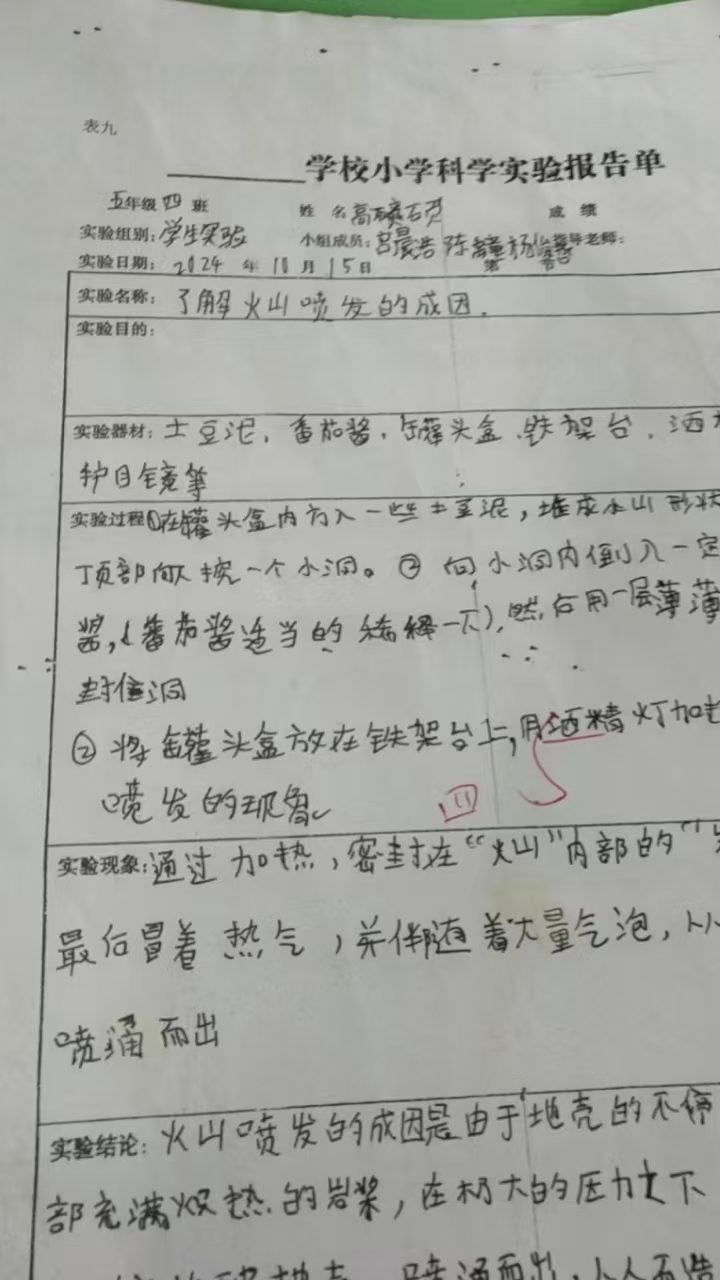 表九
学校小学科学实验报告单
五年级 四 班 姓 名 高 成 绩
实验组别：学生实验 小组成员：吕晨浩 陈 杨 指导老师：
实验日期： 2024 年 10 月 15 日
实验名称： 了解火山喷发的成因.
实验目的：
实验器材：土豆泥，番茄酱，罐头盒、铁架台，酒
护目镜等
实验过程①在罐头盒内方入一些土豆泥，堆成火山形状
顶部 挖一个小洞。② 向小洞内倒入一定
酱，(番茄酱适当的稀释一下)，然后用一层薄薄
封住洞
② 将罐头盒放在铁架台上，用酒精灯加
喷发的现象
四
实验现象：通过加热，密封在“火山”内部的“
最后冒着热气，并伴随着大量气泡，从
喷涌而出
实验结论：火山喷发的成因是由于地壳的不停
部充满炽热的岩浆，在极大的压力之下
地壳 喷涌而出